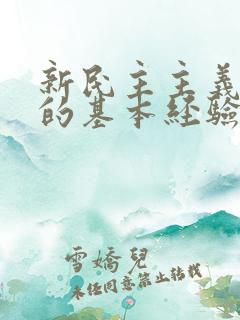 新民主主義
的基本經驗
雪嬌兒
未经同意禁止转载